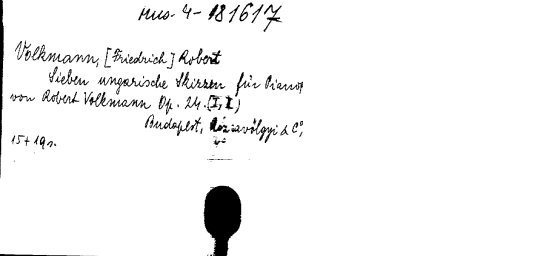 Mus. 4-181617
Volkmann, [Friedrich] Robert
Sieben ungarische Skizzen für Piano,
von Robert Volkmann Op. 24. (I, II)
Budapest, Rózsavölgyi & C°,
15+19 s.